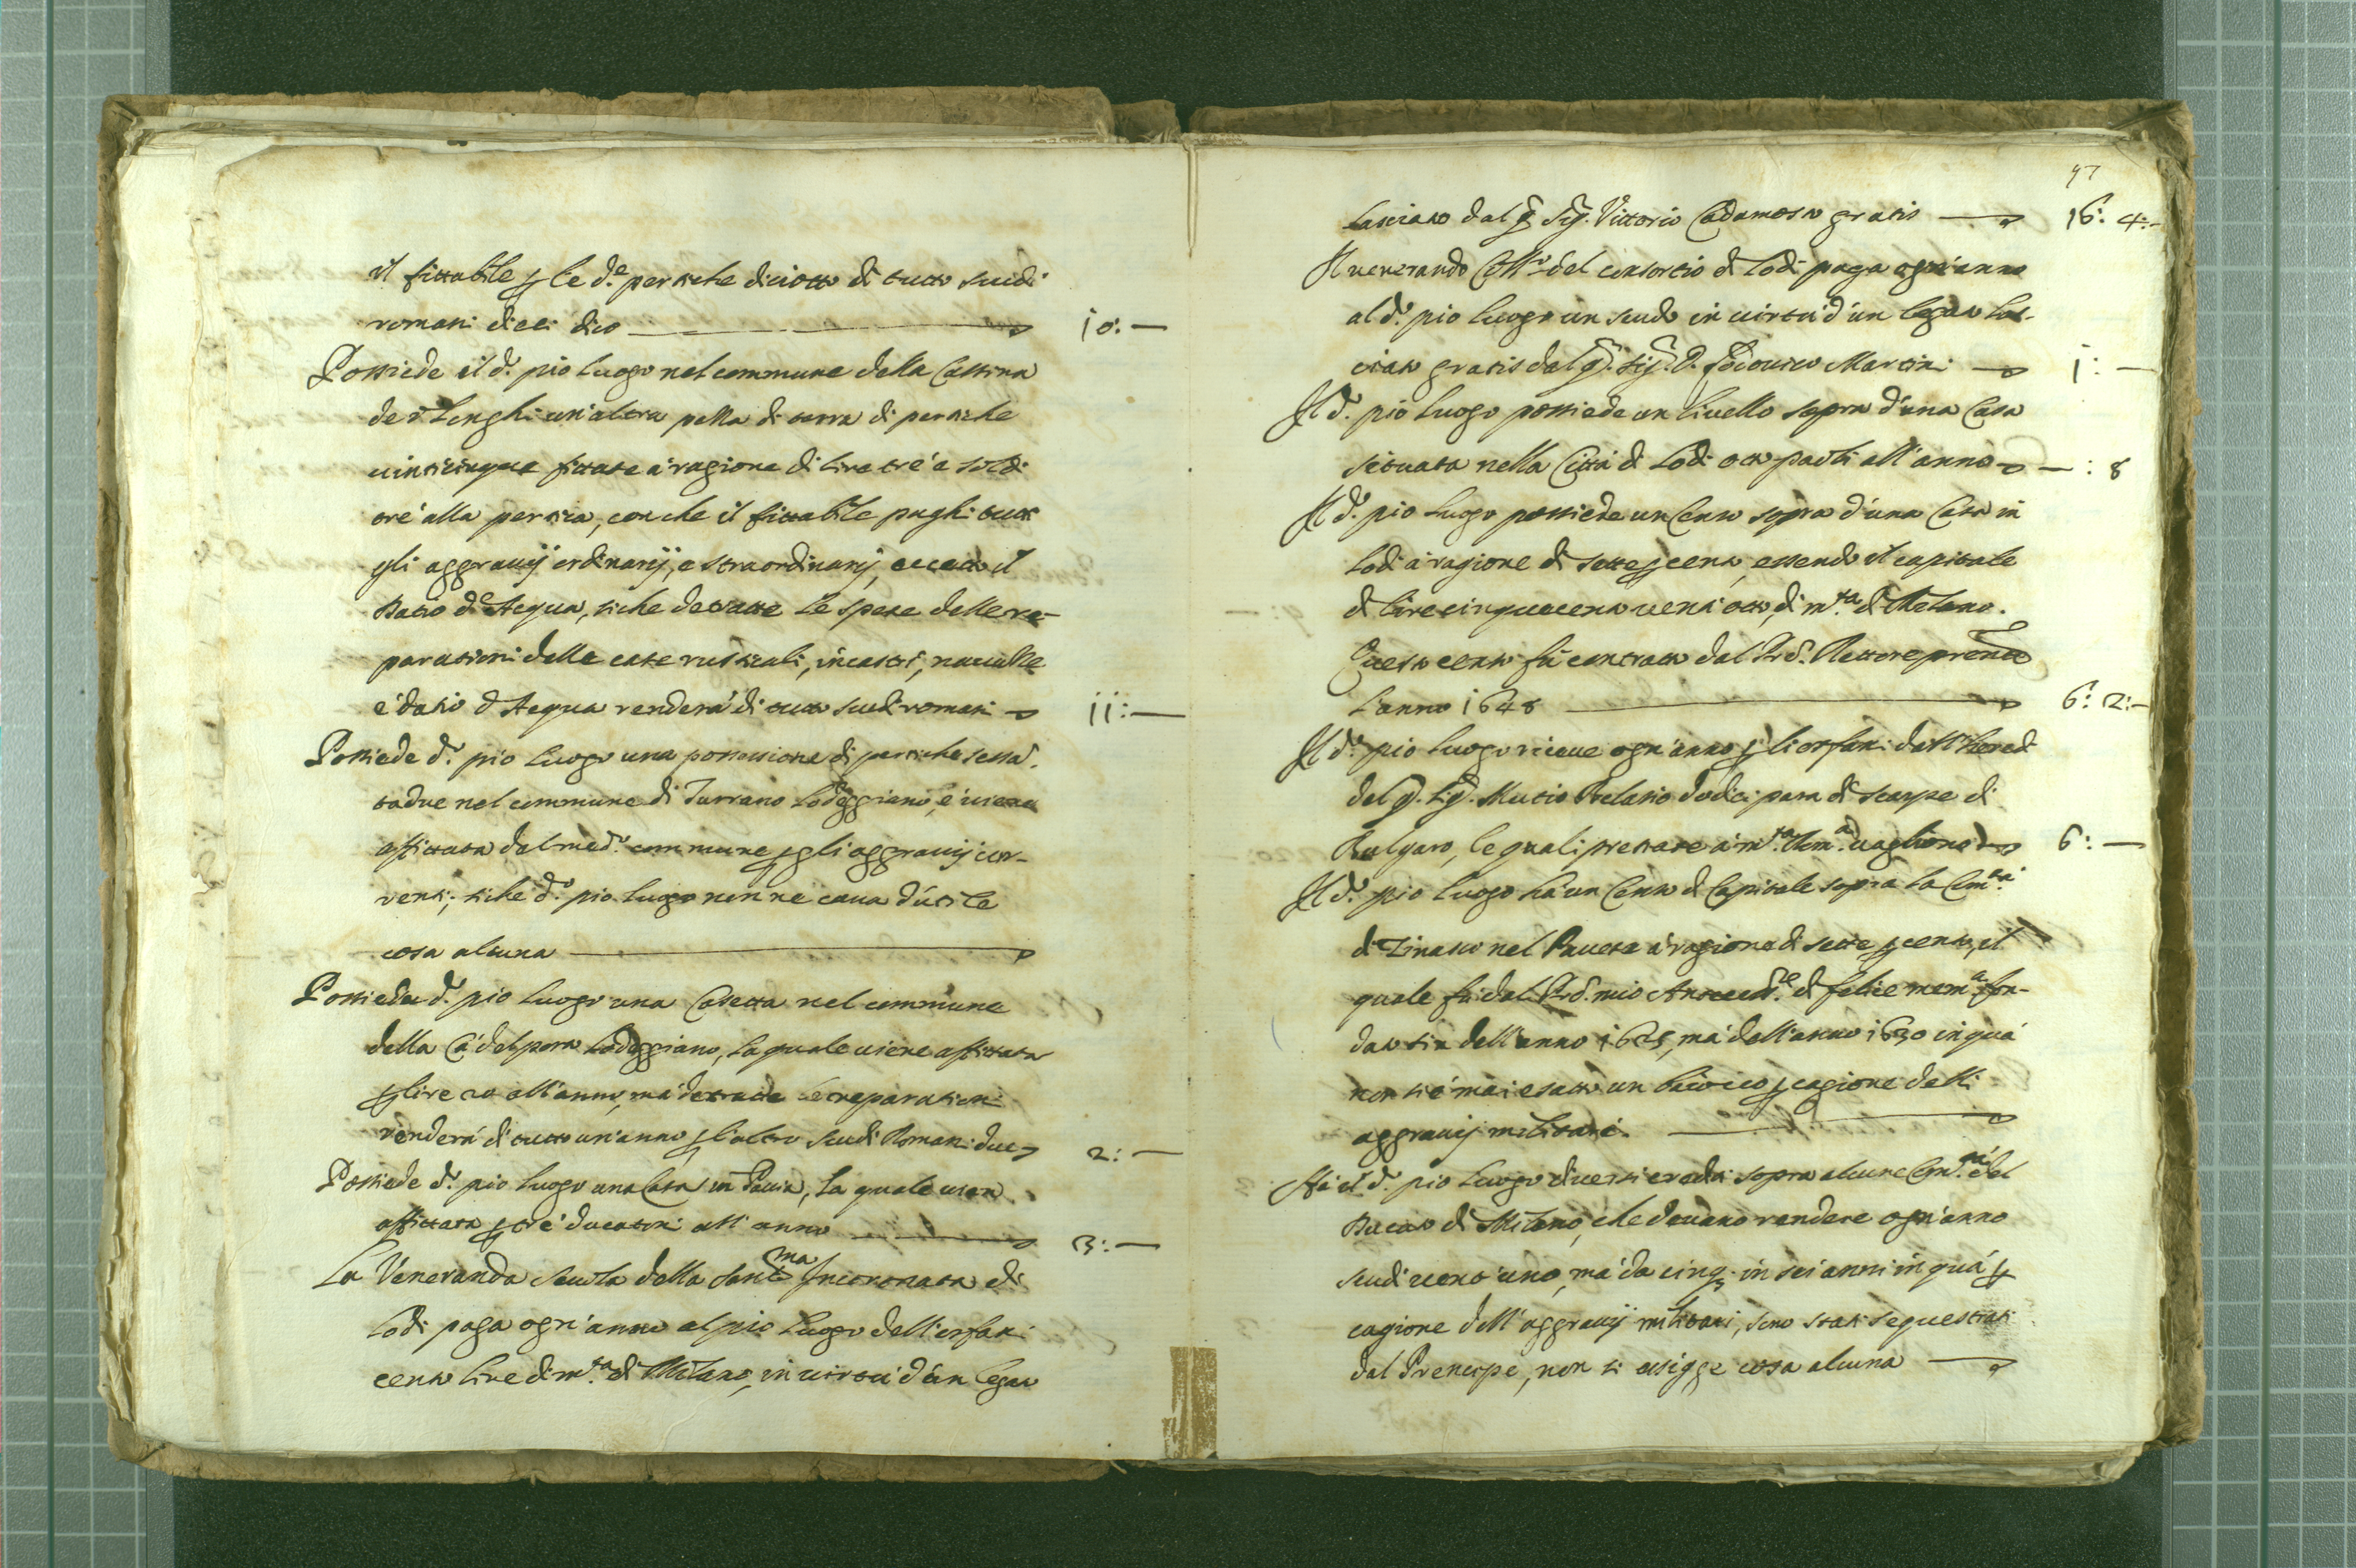 il fittabile p le d.e pertiche diciotto di tutto scudi
romani dieci dico 10: —
Possiede il d.o pio luogo nel commune della Cassina
de i Lenghi un'altra pezza di terra di pertiche
vinticinque fittate à ragione di lire trè e soldi
trè alla pertica, con che il fittabile paghi tutti
gli aggravij ordinarij, e straordinarij, eccetto il
Datio d'Acqua, siche detratte le spese delle re-
parationi delle case rusticali, incastri,
e datio d'Acqua renderà di tutto scudi romani 11: —
Possiede d.o pio luogo una possessione di pertiche sessa.
tadue nel commune di Turrano Lodeggiano, e viene
affittata dal med.o commune p gli aggravij cor-
renti; siche d.o pio luogo non ne cava d'utile
cosa alcuna
Possiede d.o pio luogo una Casetta nel commune
della Cà del Lodeggiano, la quale viene affittata
p lire 20 all'anno, mà detratte le reparationi
renderà di tutto un'anno p l'altro scudi Romani due 2: —
Possiede d.o pio luogo una Casa in Pavia, la quale vien
affittata p trè ducatoni all'anno 3: —
La Veneranda scuola della Sant.ma Incoronata di
Lodi paga ogn'anno al pio luogo dell'orfani
cento lire di m.ta di Milano, in virtù d'un legato
47
lasciato dal q. Sig. Vittorio Cadamosto gratis 16: 4: —
Il venerando del consortio di Lodi paga ogn'anno
al d.o pio luogo un scudo in virtù d'un legato las-
ciato gratis dal q. Sig. D. Lodovico Martini 1: —
Il d.o pio luogo possiede un livello sopra d'una Casa
situata nella Città di Lodi otto paoli all'anno — : 8
Il d.o pio luogo possiede un Censo sopra d'una Casa in
Lodi à ragione di sette p cento, essendo il capitale
di lire cinquecento vent'otto, di m.ta di Milano.
Questo censo fù contratto dal P.d. Rettore prente
l'anno 1648 6: 2: —
Il d.o pio luogo riceve ogn'anno p li orfani dalli heredi
del q. Sig. Mutio dodici para di scarpe di
Bulgaro, le quali prestate à m.ta Rom.a vagliono 6: —
Il d.o pio luogo hà un Censo di Capitale sopra la Com.tà
di Zinasco nel Pavese à ragione di sette p cento, il
quale fù dal P.d. mio Antecess.re di felice mem.a fon-
dato sin dell'anno 1625, mà dell'anno 1630 in quà
non si è mai esatto un baiocco p cagione delli
aggravij militari.
Hà il d.o pio luogo diversi crediti sopra alcune Com.tà del
Ducato di Milano, che devano rendere ogn'anno
scudi vent'uno, mà da cinq. in sei anni in quà p
cagione dell'aggravij militari, sono stati sequestrati
dal Prencipe, non si esigge cosa alcuna